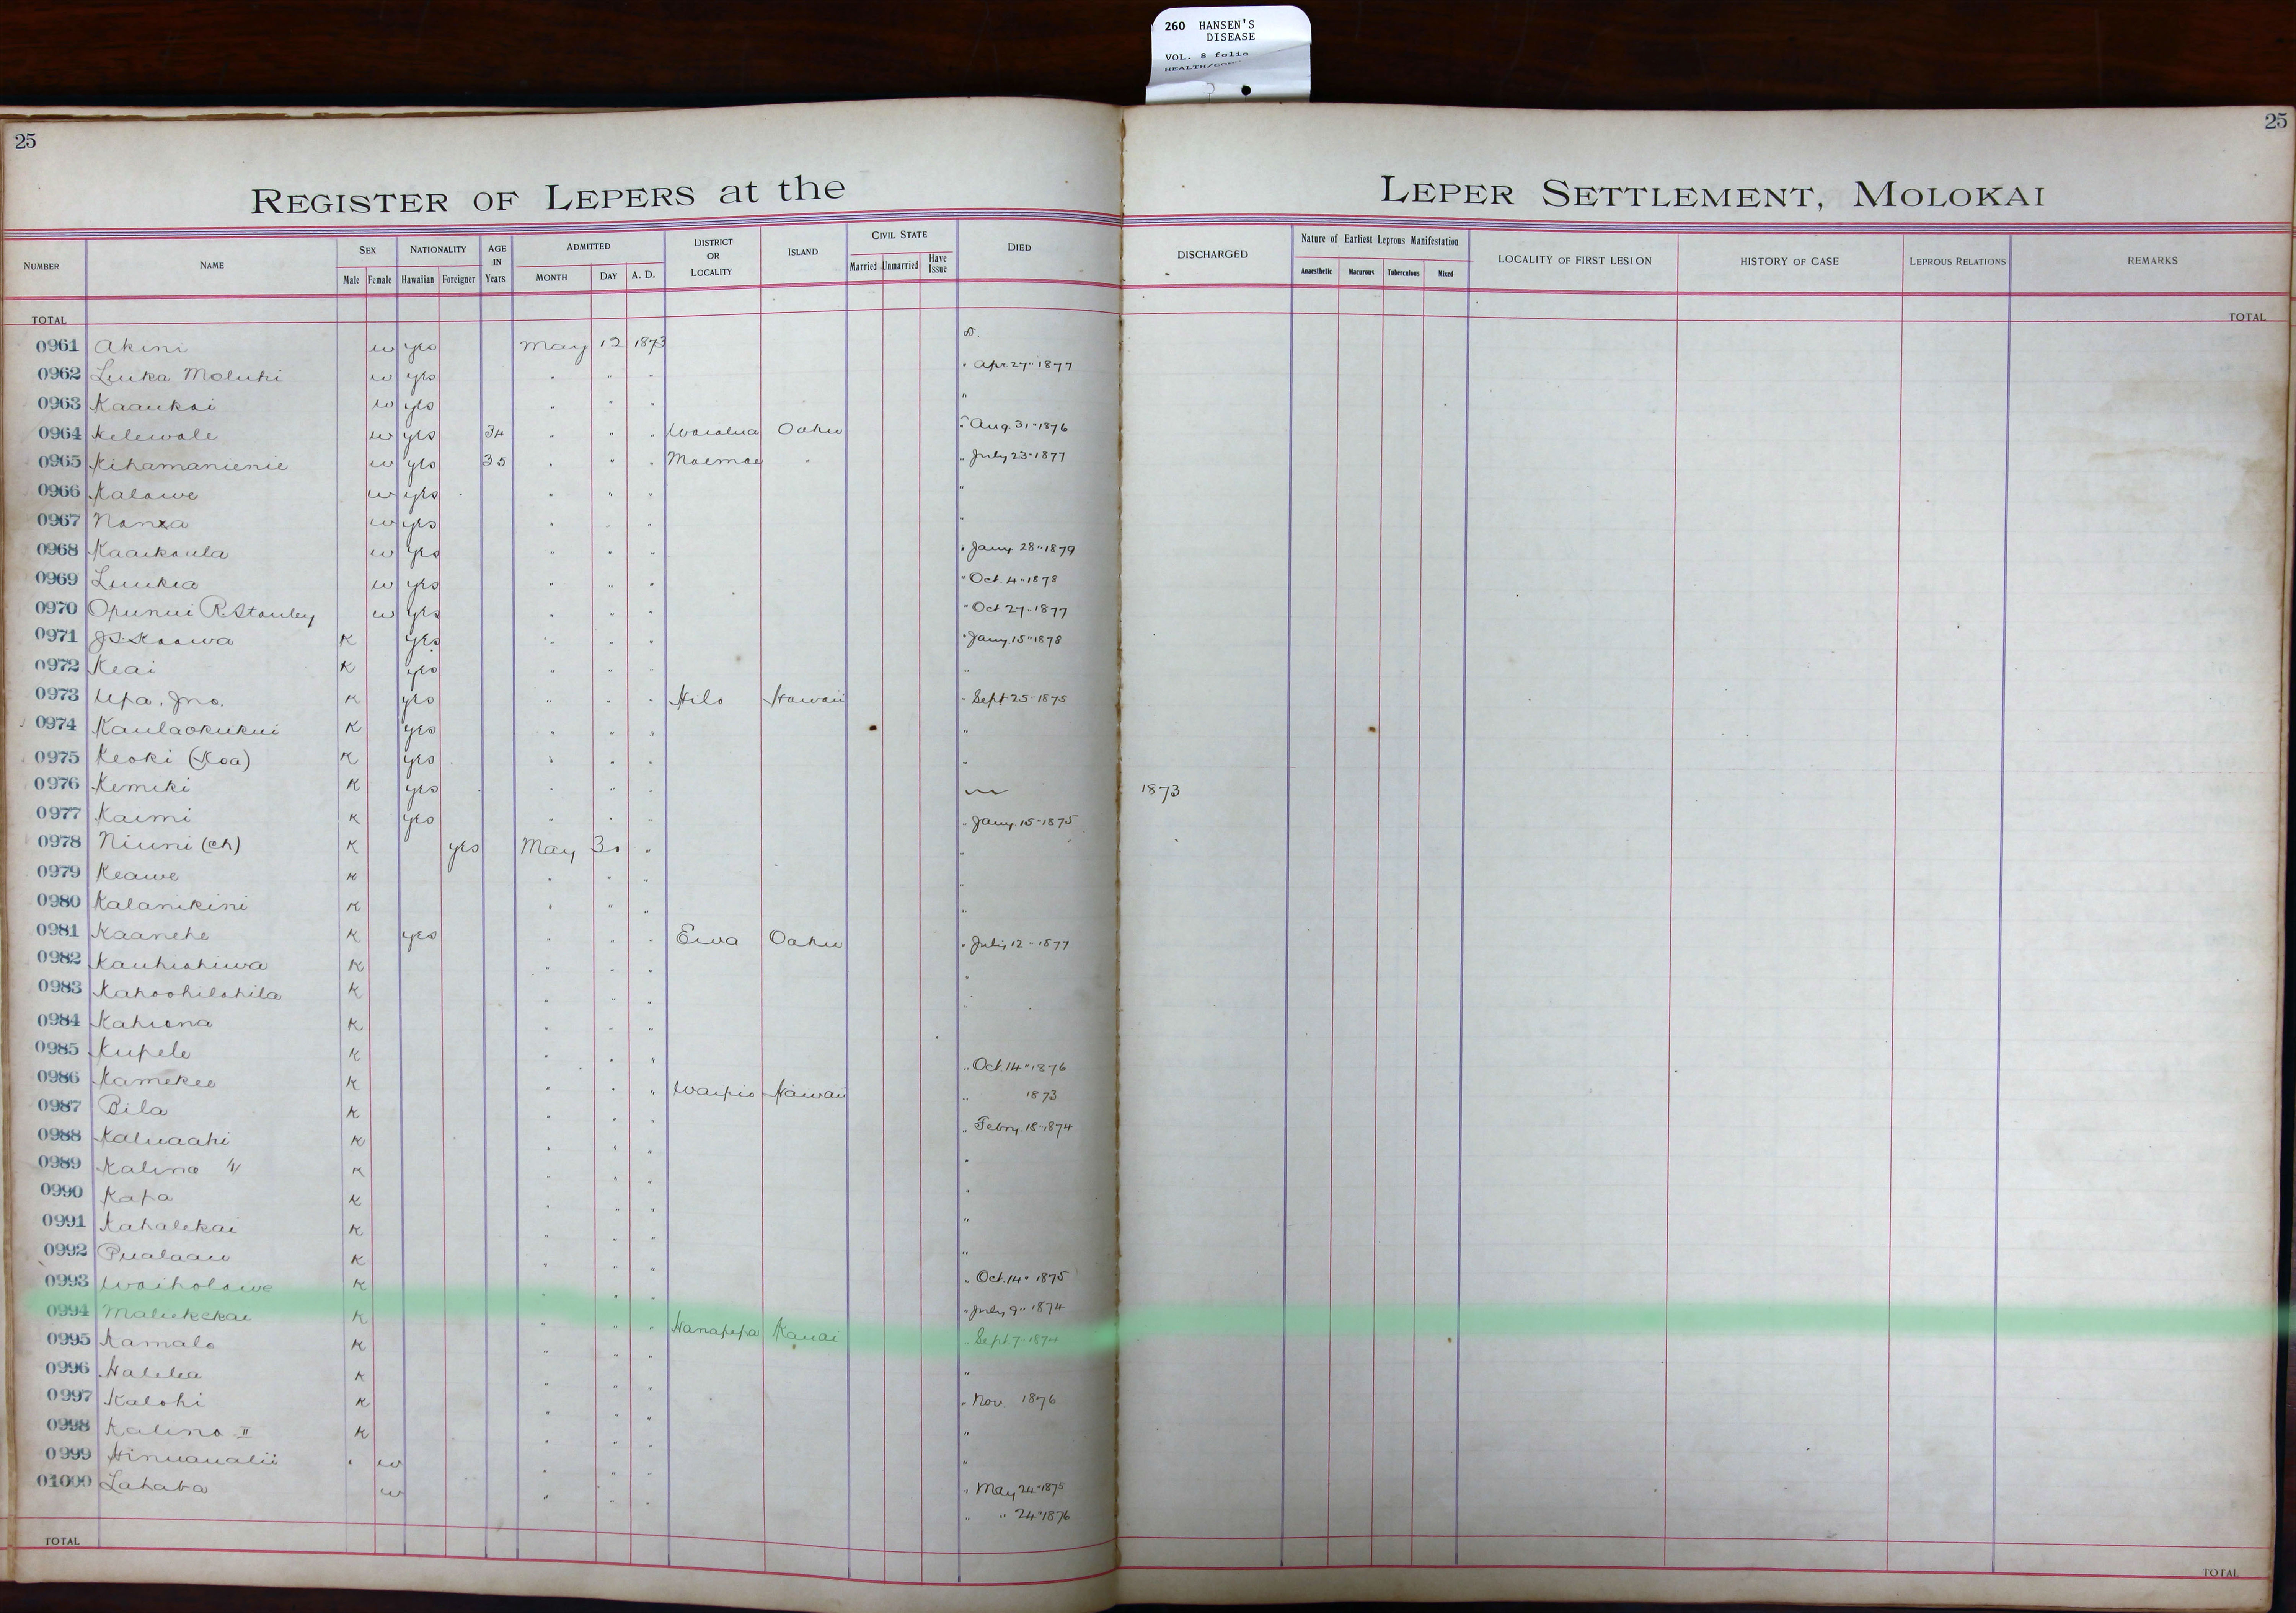 260 HANSEN'S
DISEASE
VOL. 8 folio
25
25
REGISTER OF LEPERS at the
LEPER SETTLEMENT, MOLOKAI
NUMBER NAME SEX Male Female NATIONALITY Hawaiian Foreigner AGE IN Years ADMITTED MONTH DAY A. D. DISTRICT OR LOCALITY ISLAND CIVIL STATE Married Unmarried Have Issue DIED DISCHARGED Nature of Earliest Leprous Manifestation Anaesthetic Macurous Tuberculous Mixed LOCALITY OF FIRST LESION HISTORY OF CASE LEPROUS RELATIONS REMARKS
TOTAL TOTAL
0961 Akini w yes May 12 1873 D.
0962 Luika Moluhi w yes " " " " Apr. 27" 1877
0963 Kaaukai w yes " " " "
0964 Kelewale w yes 34 " " " Waialua Oahu " Aug. 31" 1876
0965 Kihamanienie w yes 35 " " " Moemoe " " July 23" 1877
0966 Kalawe w yes " " " "
0967 w yes " " " "
0968 Kaaikaula w yes " " " " Jany. 28" 1879
0969 Luukia w yes " " " " Oct. 4" 1878
0970 Opunui R. Stanley w yes " " " " Oct 27" 1877
0971 J.S. Kaawa K yes " " " " Jany. 15" 1878
0972 Keai K yes " " " "
0973 Upa, Jno. K yes " " " Hilo Hawaii " Sept 25" 1875
0974 Kaulaokukui K yes " " " "
0975 Keoki (Koa) K yes " " " "
0976 Kemiki K yes " " " 1873
0977 Kaimi K yes " " " " Jany. 15" 1875
0978 Niuni (Ch) K yes May 30 " "
0979 Keawe K " " " "
0980 Kalanikini K " " " "
0981 Kaanehe K yes " " " Ewa Oahu " July 12" 1877
0982 Kauhiahiwa K " " " "
0983 Kahoohilahila K " " " "
0984 Kahiona K " " "
0985 Kupele K " " " " Oct. 14" 1876
0986 Kamekee K " " " Waipio Hawaii " 1873
0987 Bila K " " " " Febry. 18" 1874
0988 Kaluaahi K " " " "
0989 Kalino K " " " "
0990 Kapa K " " " "
0991 Kahalekai K " " " "
0992 Pualaau K " " " " Oct. 14" 1875
0993 Waiholowe K " " " " July 9" 1874
0994 Maliekekai K " " " Hanapepe Kauai " Sept. 7" 1874
0995 Kamalo K " " " "
0996 Halelea K " " " " Nov. 1876
0997 Kalohi K " " " "
0998 Kalino II K " " " "
0999 Hinuaualii w " " " " May 24" 1875
01000 Lahaba w " " " " " 24" 1876
TOTAL TOTAL